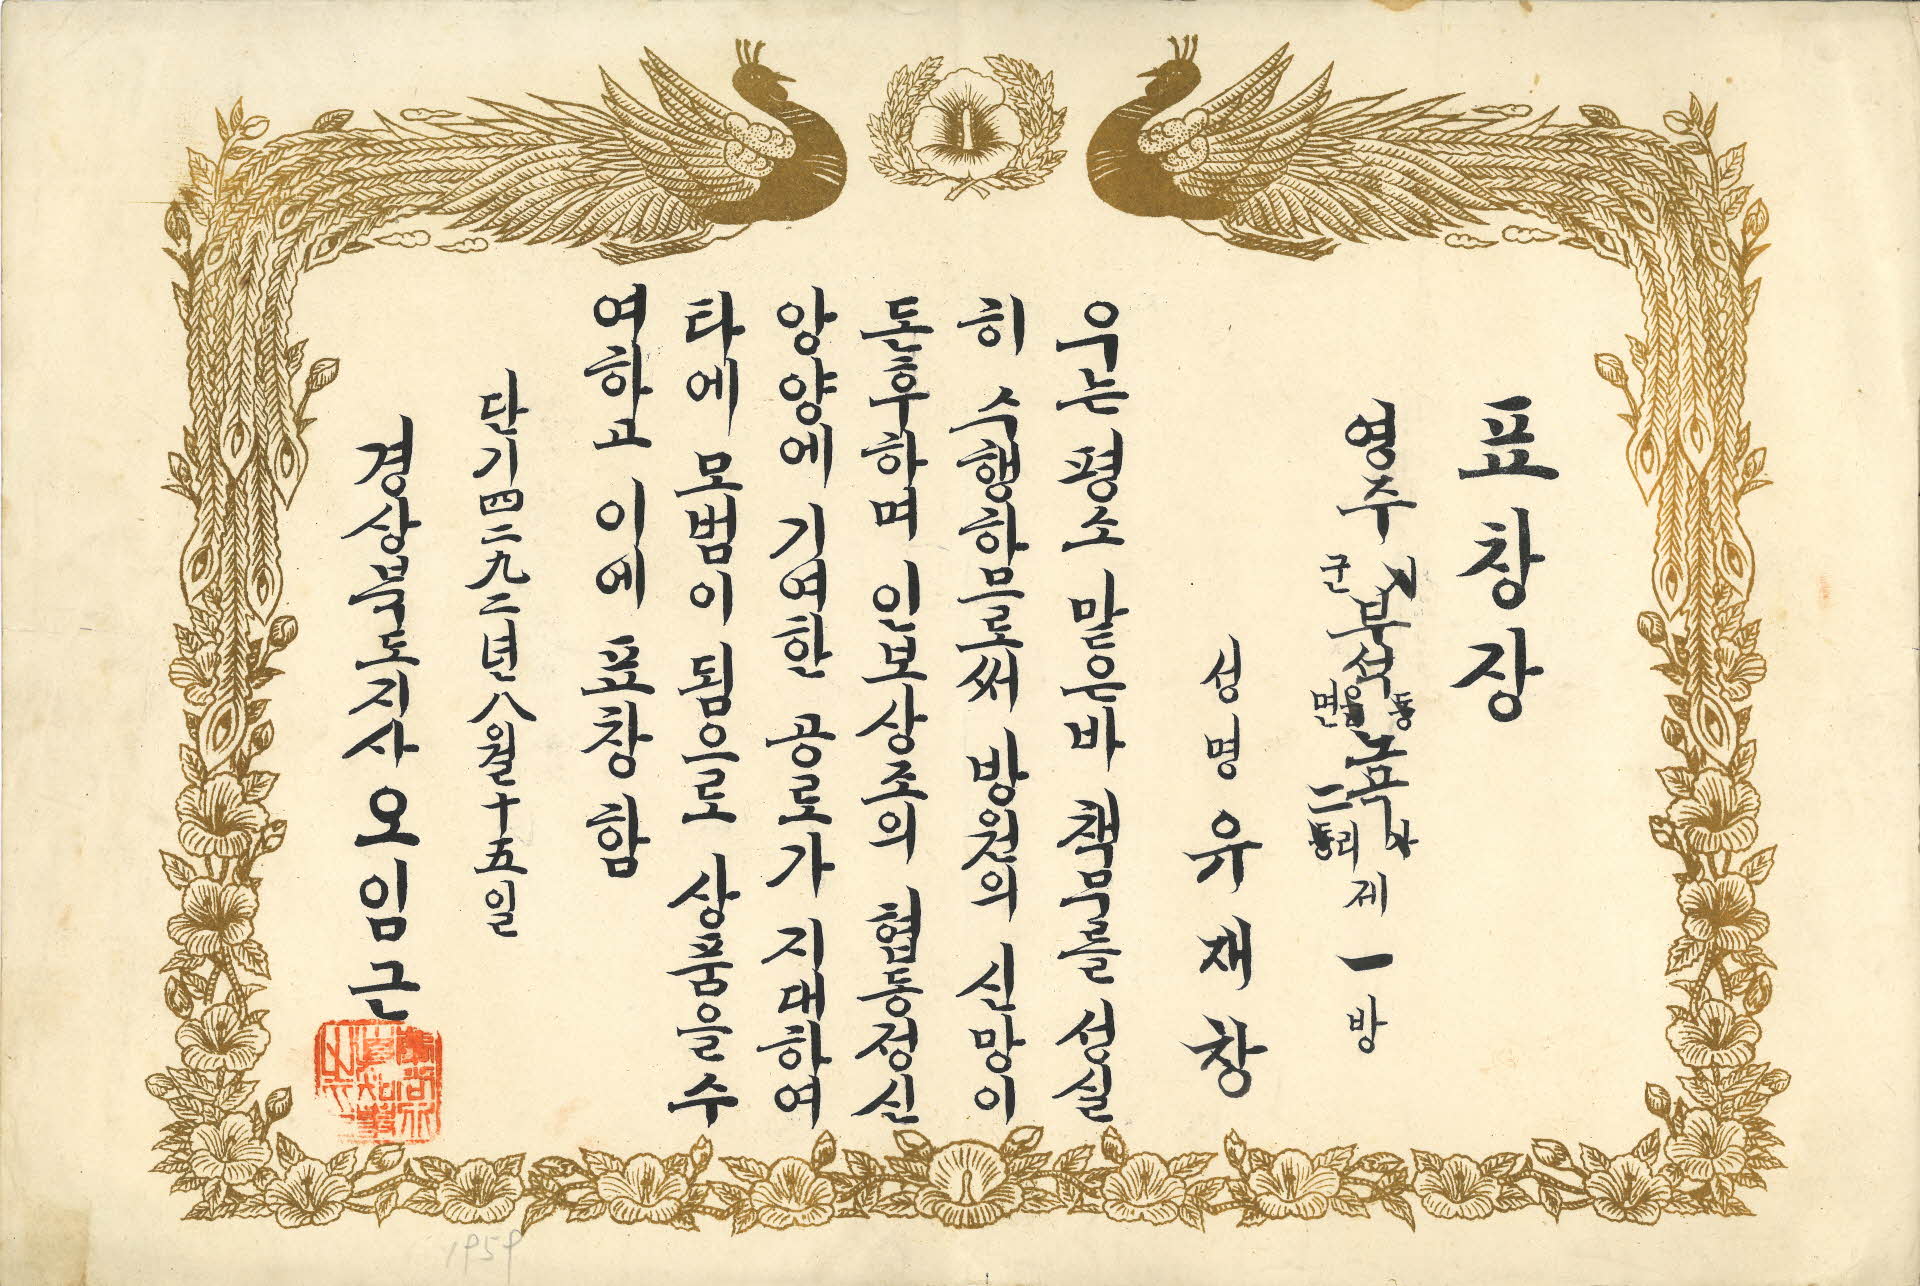 표창장
영주군 부석면 노곡二리 제一방
성명 유재창
우는 평소 맡은바 책무를 성실
히 수행하므로써 방원의 신망이
돈후하며 인보상조의 협동정신
앙양에 기여한 공로가 지대하여
타에 모범이 됨으로 상품을 수
여하고 이에 표창함
단기四二九二년八월十五일
경상북도지사 오임근
1959